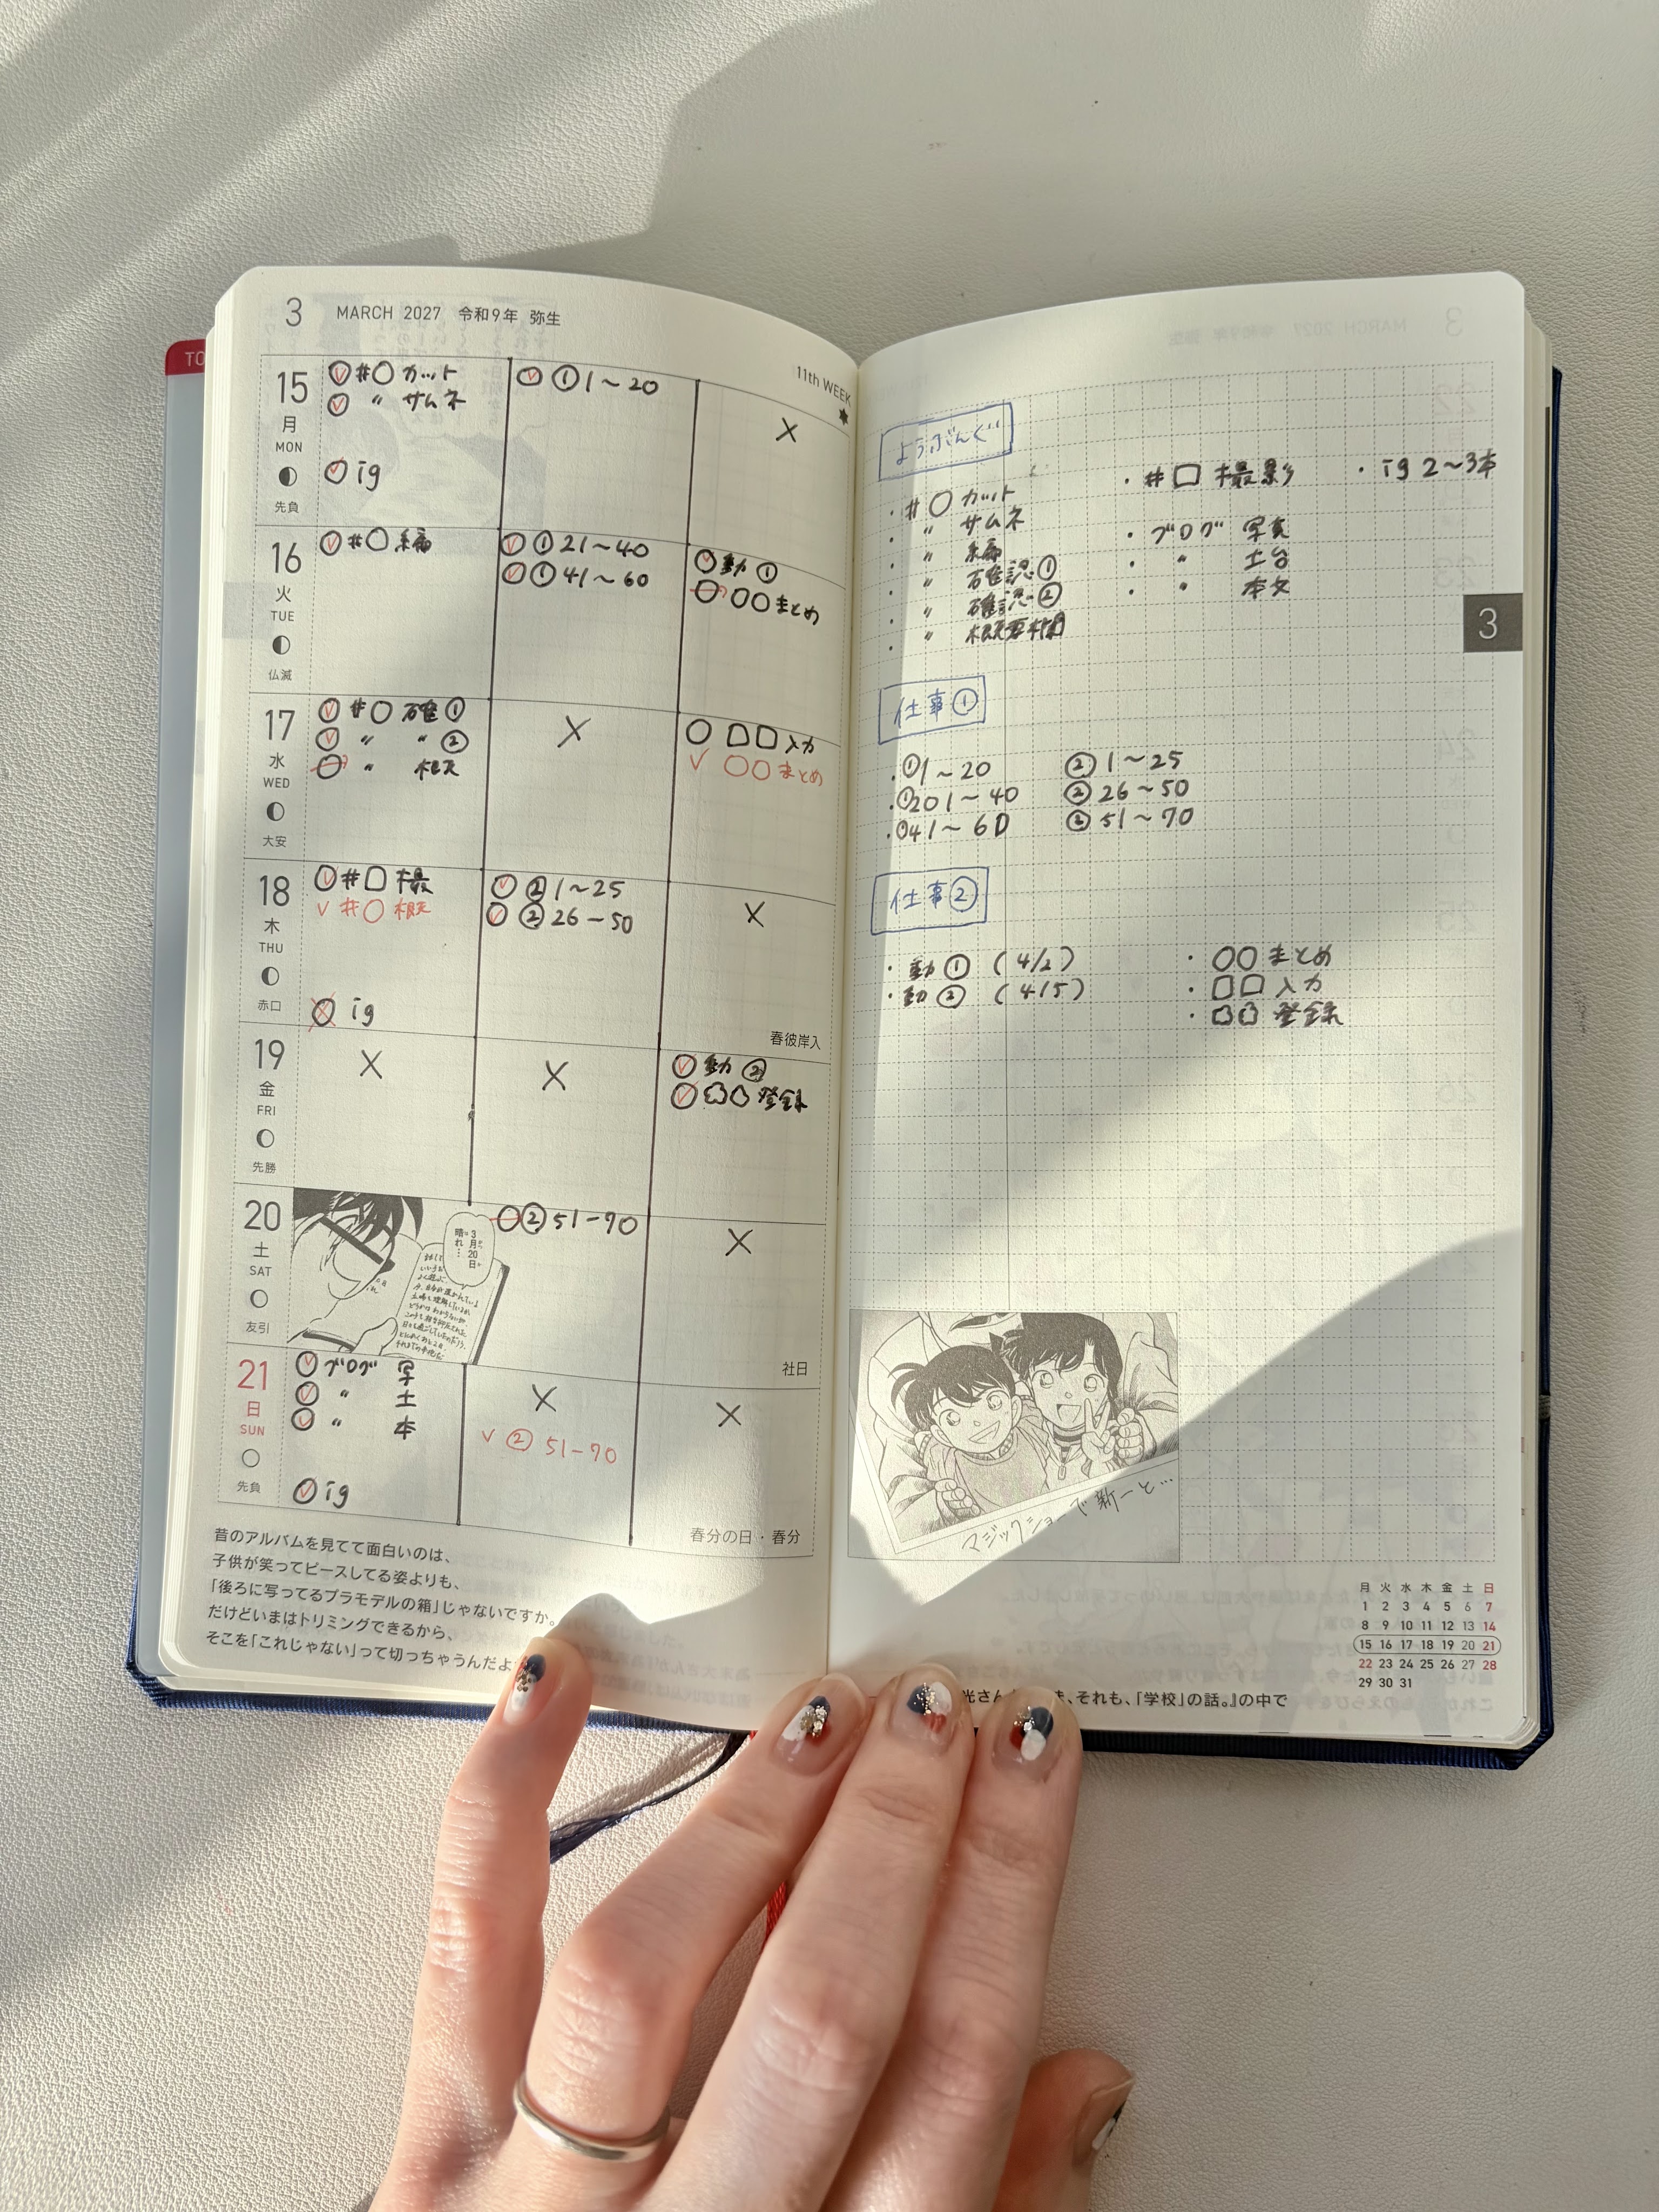 TO
3 MARCH 2027 令和9年 弥生
11th WEEK
15 月 MON 先負
#○ カット
〃 サムネ
ig
① 1～20
×
16 火 TUE 仏滅
#○ 編
① 21～40
① 41～60
動 ①
○○まとめ
17 水 WED 大安
#○ 確①
〃 〃 ②
〃 概
×
□□入力
✓ ○○まとめ
18 木 THU 赤口
#□ 撮
✓ #○ 概
ig
② 1～25
② 26～50
×
春彼岸入
19 金 FRI 先勝
×
×
動 ②
登録
20 土 SAT 友引
3月20日
晴れ…
② 51-70
×
社日
21 日 SUN 先負
ブログ 写
〃 土
〃 本
ig
×
✓ ② 51-70
×
春分の日・春分
昔のアルバムを見てて面白いのは、
子供が笑ってピースしてる姿よりも、
「後ろに写ってるプラモデルの箱」じゃないですか。
だけどいまはトリミングできるから、
そこを「これじゃない」って切っちゃうんだよ
・#○ カット
・〃 サムネ
・〃 編
・〃 確認①
・〃 確認②
・〃 概要欄
・#□ 撮影
・ブログ 写真
・〃 土台
・〃 本文
・ig 2～3本
3
仕事①
・①1～20
・①201～40
・①41～60
② 1～25
② 26～50
② 51～70
仕事②
・動① (4/2)
・動② (4/5)
・○○まとめ
・□□入力
・登録
マジックショーで新一と…
月 火 水 木 金 土 日
1 2 3 4 5 6 7
8 9 10 11 12 13 14
15 16 17 18 19 20 21
22 23 24 25 26 27 28
29 30 31
光さん
、それも、「学校」の話。』の中で